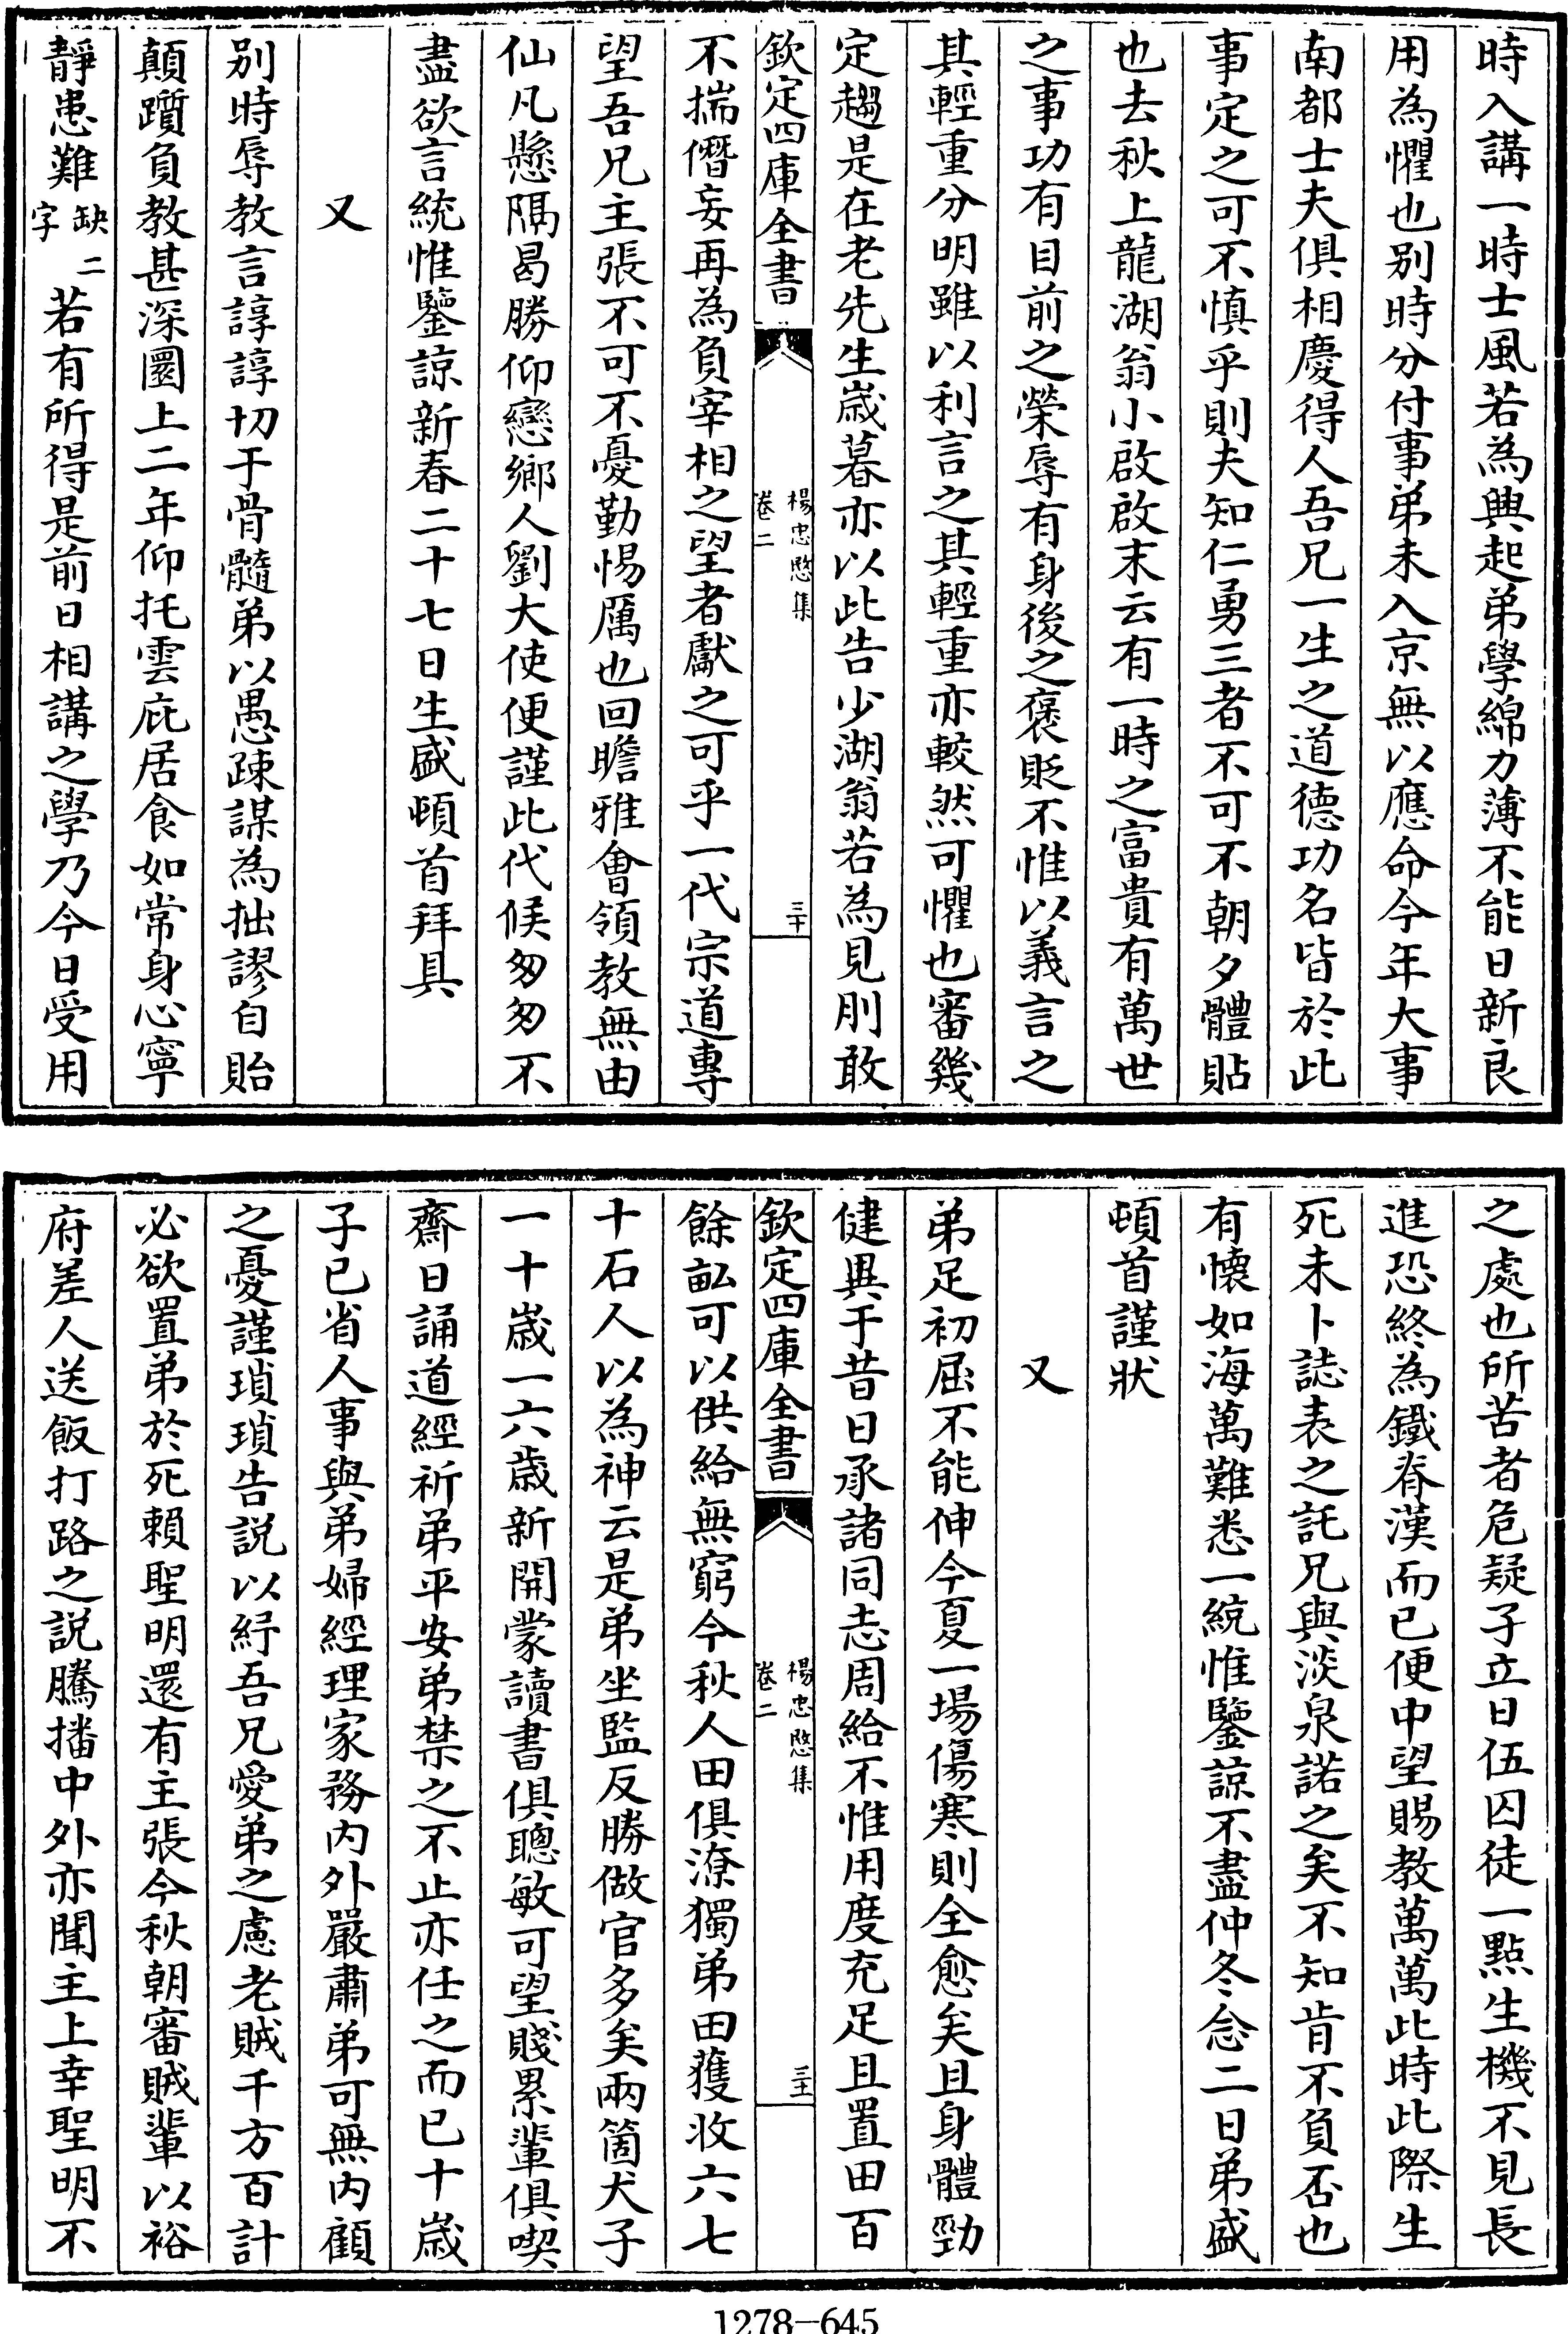 時入講一時士風若為興起弟學綿力薄不能日新良
用為懼也别時分付事弟未入京無以應命今年大事
南都士夫俱相慶得人吾兄一生之道德功名皆於此
事定之可不慎乎則夫知仁勇三者不可不朝夕體貼
也去秋上龍湖翁小啟啟末云有一時之富貴有萬世
之事功有目前之榮辱有身後之褒貶不惟以義言之
其輕重分明雖以利言之其輕重亦較然可懼也審幾
定趨是在老先生歳暮亦以此告少湖翁若為見刖敢
欽定四庫全書
楊忠愍集
卷二
三十
不揣僭妄再為負宰相之望者獻之可乎一代宗道專
望吾兄主張不可不憂勤惕厲也回瞻雅會領教無由
仙凡懸隔曷勝仰戀鄉人劉大使便謹此代候匆匆不
盡欲言統惟鑒諒新春二十七日生盛頓首拜具
又
别時辱教言諄諄切于骨髓弟以愚疎謀為拙謬自貽
顛躓負教甚深圜上二年仰托雲庇居食如常身心寧
靜患難缺二字若有所得是前日相講之學乃今日受用
之處也所苦者危疑子立日伍囚徒一點生機不見長
進恐終為鐵脊漢而已便中望賜教萬萬此時此際生
死未卜誌表之託兄與淡泉諾之矣不知肯不負否也
有懷如海萬難悉一統惟鑒諒不盡仲冬念二日弟盛
頓首謹狀
又
弟足初屈不能伸今夏一場傷寒則全愈矣且身體勁
健異于昔日承諸同志周給不惟用度充足且置田百
欽定四庫全書
楊忠愍集
卷二
三十一
餘畝可以供給無窮今秋人田俱潦獨弟田獲收六七
十石人以為神云是弟坐監反勝做官多矣兩箇犬子
一十歳一六歳新開蒙讀書俱聰敏可望賤累輩俱喫
齋日誦道經祈弟平安弟禁之不止亦任之而已十歳
子已省人事與弟婦經理家務内外嚴肅弟可無内顧
之憂謹瑣瑣告説以紓吾兄愛弟之慮老賊千方百計
必欲置弟於死賴聖明還有主張今秋朝審賊輩以裕
府差人送飯打路之説騰播中外亦聞主上幸聖明不
1278-645